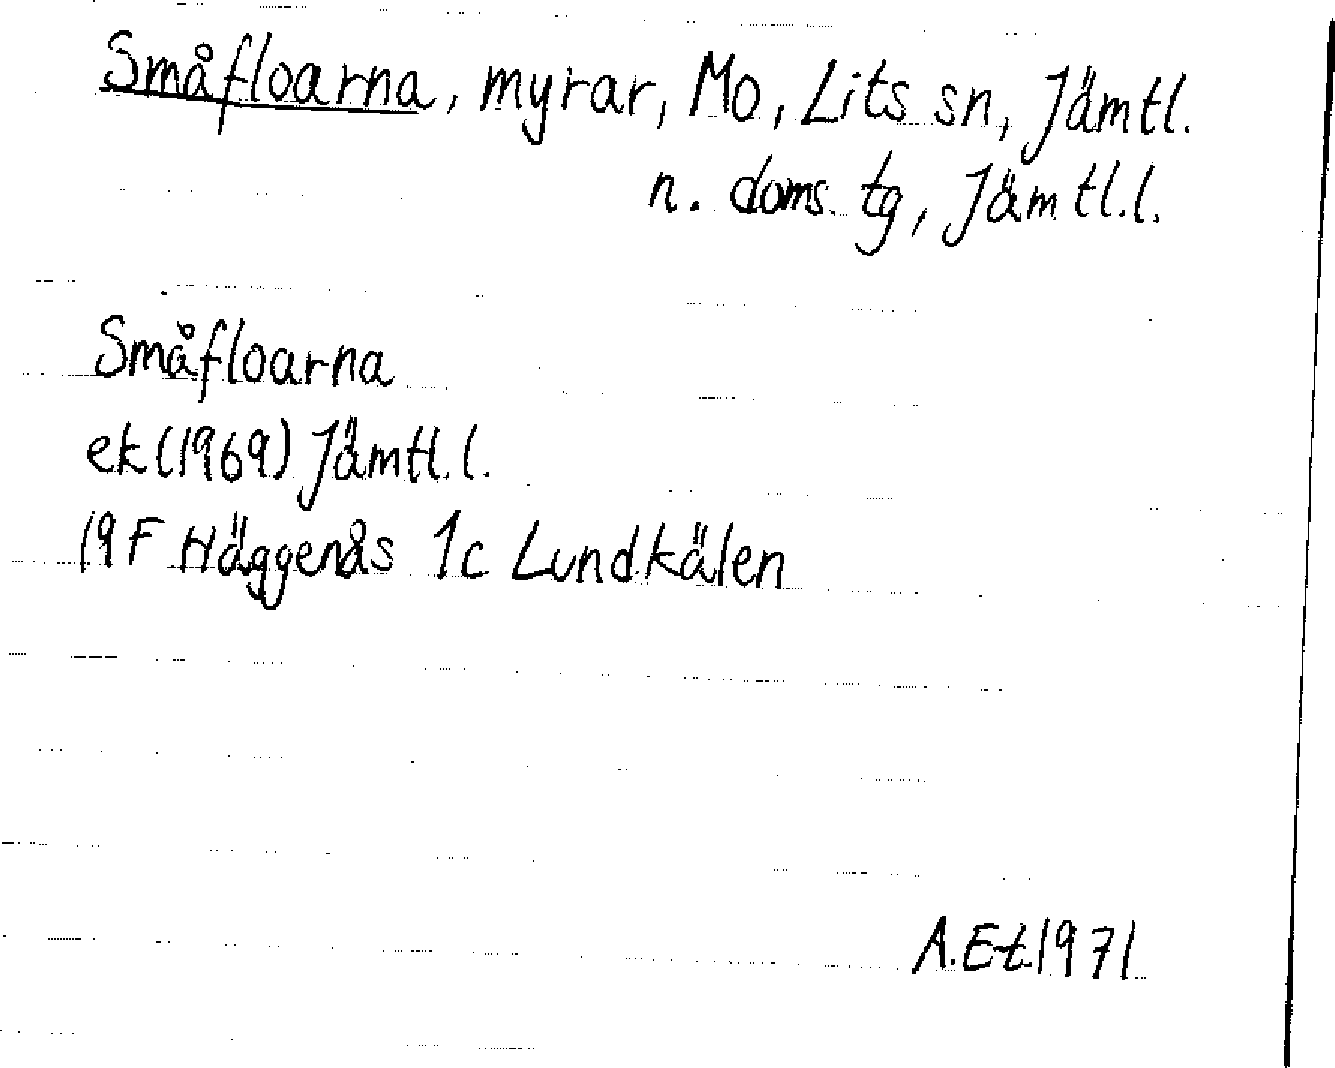 Småfloarna, myrar, Mo, Lits sn, Jämtl.
n. doms. tg, Jämtl.l.
Småfloarna
ek (1969) Jämtl.l.
19F Häggenås 1c Lundkälen
A.Et.1971